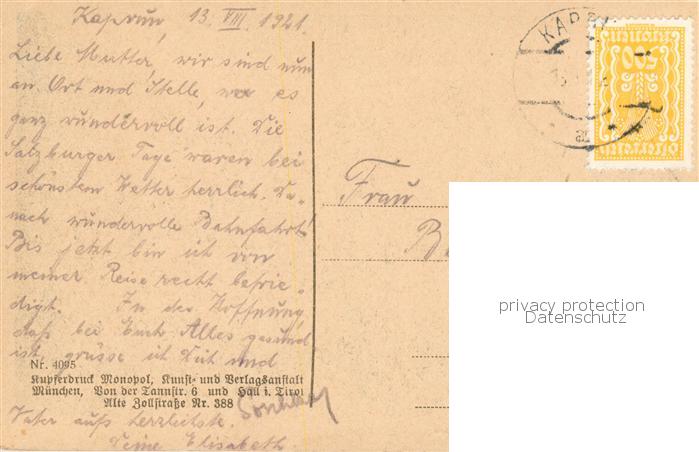 Kaprun, 13. VIII. 1921.
Liebe Mutter, wir sind nun
an Ort und Stelle, wo es
ganz wundervoll ist. Die
Salzburger Tage waren bei
schönstem Wetter herrlich. Da-
nach wundervolle Bahnfahrt!
Bis jetzt bin ich von
meiner Reise recht befrie-
digt. In der Hoffnung,
daß bei Euch Alles gesund
ist, grüsse ich Dich und
Nr. 4095
Kupferdruck Monopol, Kunst- und Verlagsanstalt
München, Von der Tannstr. 6 und Hall i. Tirol
Alte Zollstraße Nr. 388
Vater aufs herzlichste.
Deine Elisabeth.
KAPR
500
Frau
privacy protection
Datenschutz